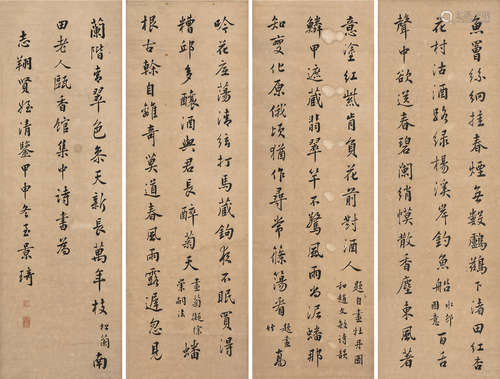 魚罾絲網挂春煙無數鸕鶿下渚田紅杏
花村沽酒路綠楊溪岸釣魚船水邨圖意百舌
聲中欲送春碧闌綃幙散香塵東風著
意塗紅紫肯負花前對酒人題自畫牡丹圖和趙文敏詩韻
鱗甲遮藏翡翠竿不驚風雨為泥蟠那
知變化原俄頃猶作尋常篠蕩看題畫竹高
吟花座蕩清絃打馬藏鉤夜不眠買得
糟邱多釀酒與君長醉菊天畫菊題徐崇嗣法蟠
根古榦自離奇莫道春風雨露遲忽見
蘭階青翠色參天新長萬年枝松蘭南
田老人甌香館集中詩書為
志翔賢姪清鑒甲申冬王景琦